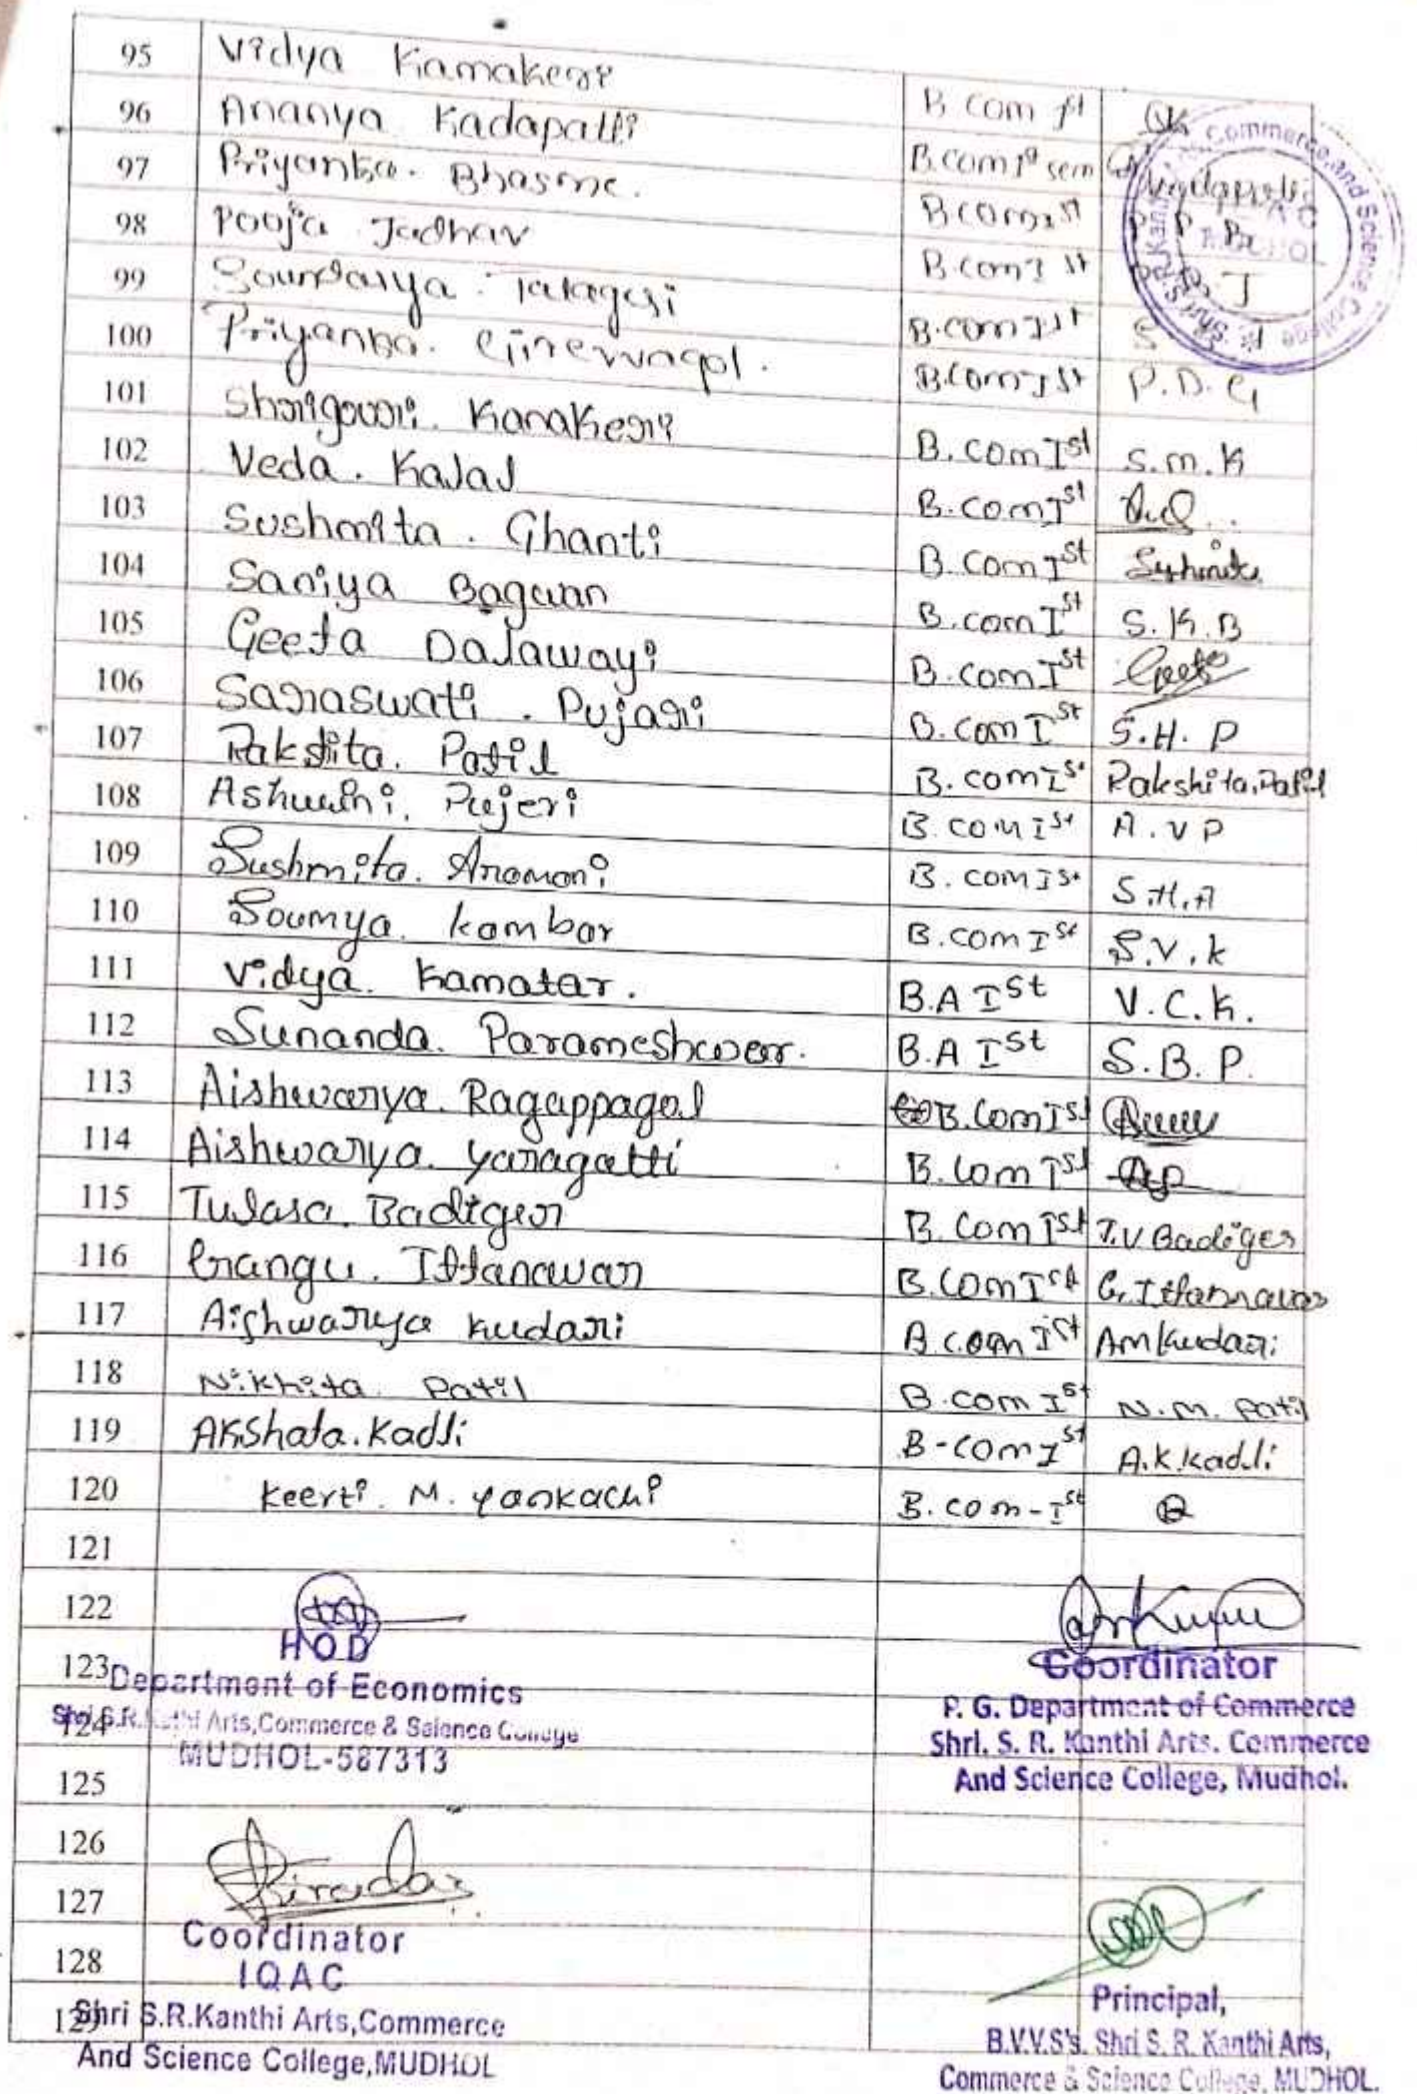 95 Vidya Kamakeri B com st
96 Ananya Kadapatti B.com Ist sem
97 Priyanka. Bhasme. Bcom Ist P. P. B
98 Pooja Jadhav B com I st
99 Soundarya. Talageri B.com Ist S
100 Priyanka. Girevvagol. B.Com I st P.D.G
101 Shrigouri. Kanakeri B.com Ist S.m.K
102 Veda. Kalal B.com Ist
103 Sushmita. Ghanti B.com Ist Sushmita
104 Saniya Bagwan B.com Ist S.K.B
105 Geeta Dalawayi B.com Ist Geeta
106 Saraswati. Pujari B.com Ist S.H. P
107 Rakshita. Patil B.comIst Rakshita.Patil
108 Ashwini. Pujeri B.com Ist A.V P
109 Sushmita. Aramani B.com Ist S.H.A
110 Soumya. kambar B.com Ist S.V.k
111 Vidya. Kamatar. B.A Ist V.C.K.
112 Sunanda. Parameshwar. B.A Ist S.B.P.
113 Aishwarya. Ragappagol B.Com Ist
114 Aishwarya. Yaragatti B.Com Ist
115 Tulasa. Badiger B.Com Ist T.V Badiger
116 Gangu. Ittanawan B.Com Ist G.Ittannavar
117 Aishwarya kudari B.com Ist Amkudari
118 Nikhita Patil B.com Ist N.M. Patil
119 Akshata.Kadli B-com Ist A.K.Kadli
120 Keerti. M. Yankachi B.com-Ist
121
122
HOD
Coordinator
123
Department of Economics
P. G. Department of Commerce
124
Shri S.R.Kathi Arts,Commerce & Science College
Shri. S. R. Kanthi Arts. Commerce
MUDHOL-587313
And Science College, Mudhol.
125
126
127
Coordinator
128
IQAC
Principal,
129
Shri S.R.Kanthi Arts,Commerce
B.V.V.S's. Shri S. R. Kanthi Arts,
And Science College,MUDHOL
Commerce & Science College, MUDHOL.